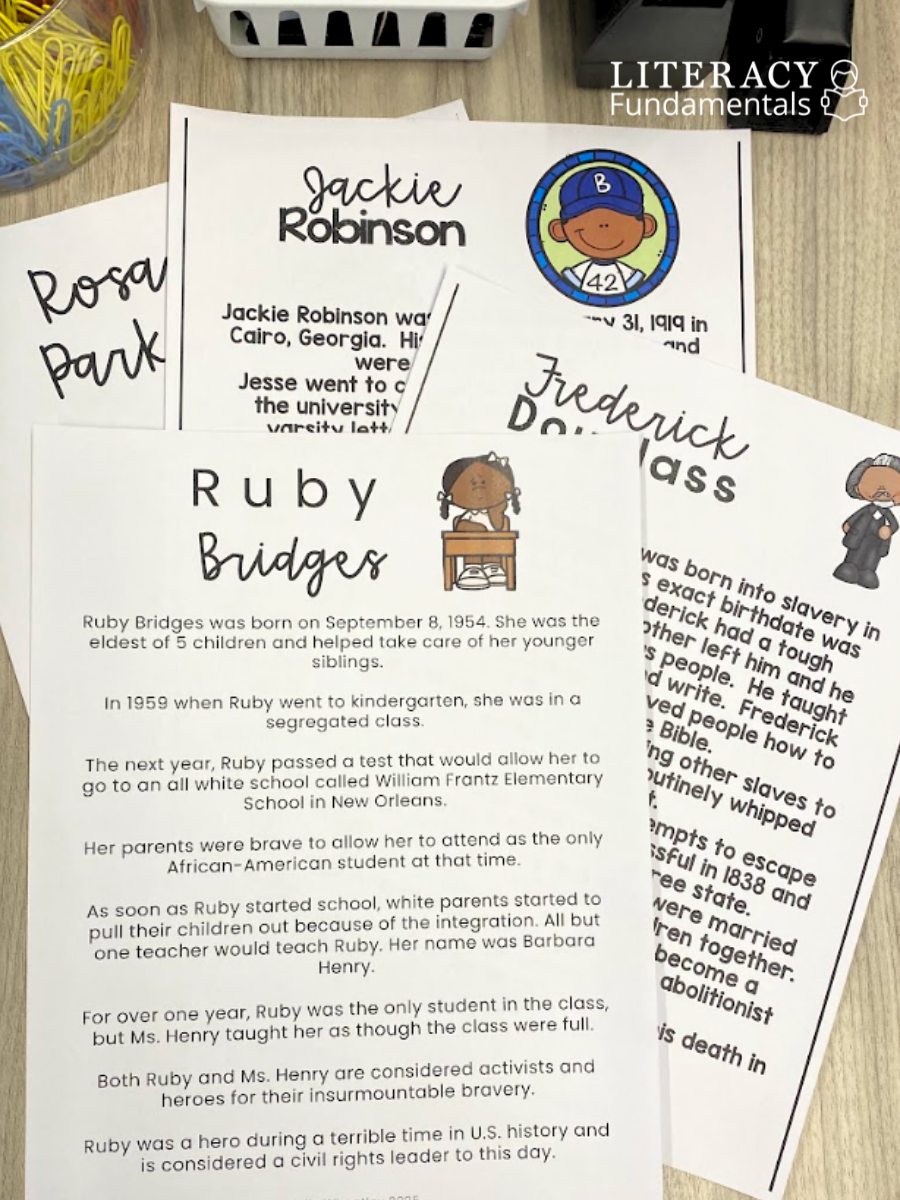 LITERACY
Fundamentals
Jackie
Robinson
B
42
Jackie Robinson was
31, 1919 in
Cairo, Georgia.
and
were
Jesse went to
the university
varsity
Rosa
Park
Frederick
was born into slavery in
exact birthdate was
had a tough
left him and he
people. He taught
write. Frederick
people how to
Bible.
other slaves to
routinely whipped
to escape
in 1838 and
state.
were married
together.
become a
abolitionist
death in
Ruby
Bridges
Ruby Bridges was born on September 8, 1954. She was the
eldest of 5 children and helped take care of her younger
siblings.
In 1959 when Ruby went to kindergarten, she was in a
segregated class.
The next year, Ruby passed a test that would allow her to
go to an all white school called William Frantz Elementary
School in New Orleans.
Her parents were brave to allow her to attend as the only
African-American student at that time.
As soon as Ruby started school, white parents started to
pull their children out because of the integration. All but
one teacher would teach Ruby. Her name was Barbara
Henry.
For over one year, Ruby was the only student in the class,
but Ms. Henry taught her as though the class were full.
Both Ruby and Ms. Henry are considered activists and
heroes for their insurmountable bravery.
Ruby was a hero during a terrible time in U.S. history and
is considered a civil rights leader to this day.